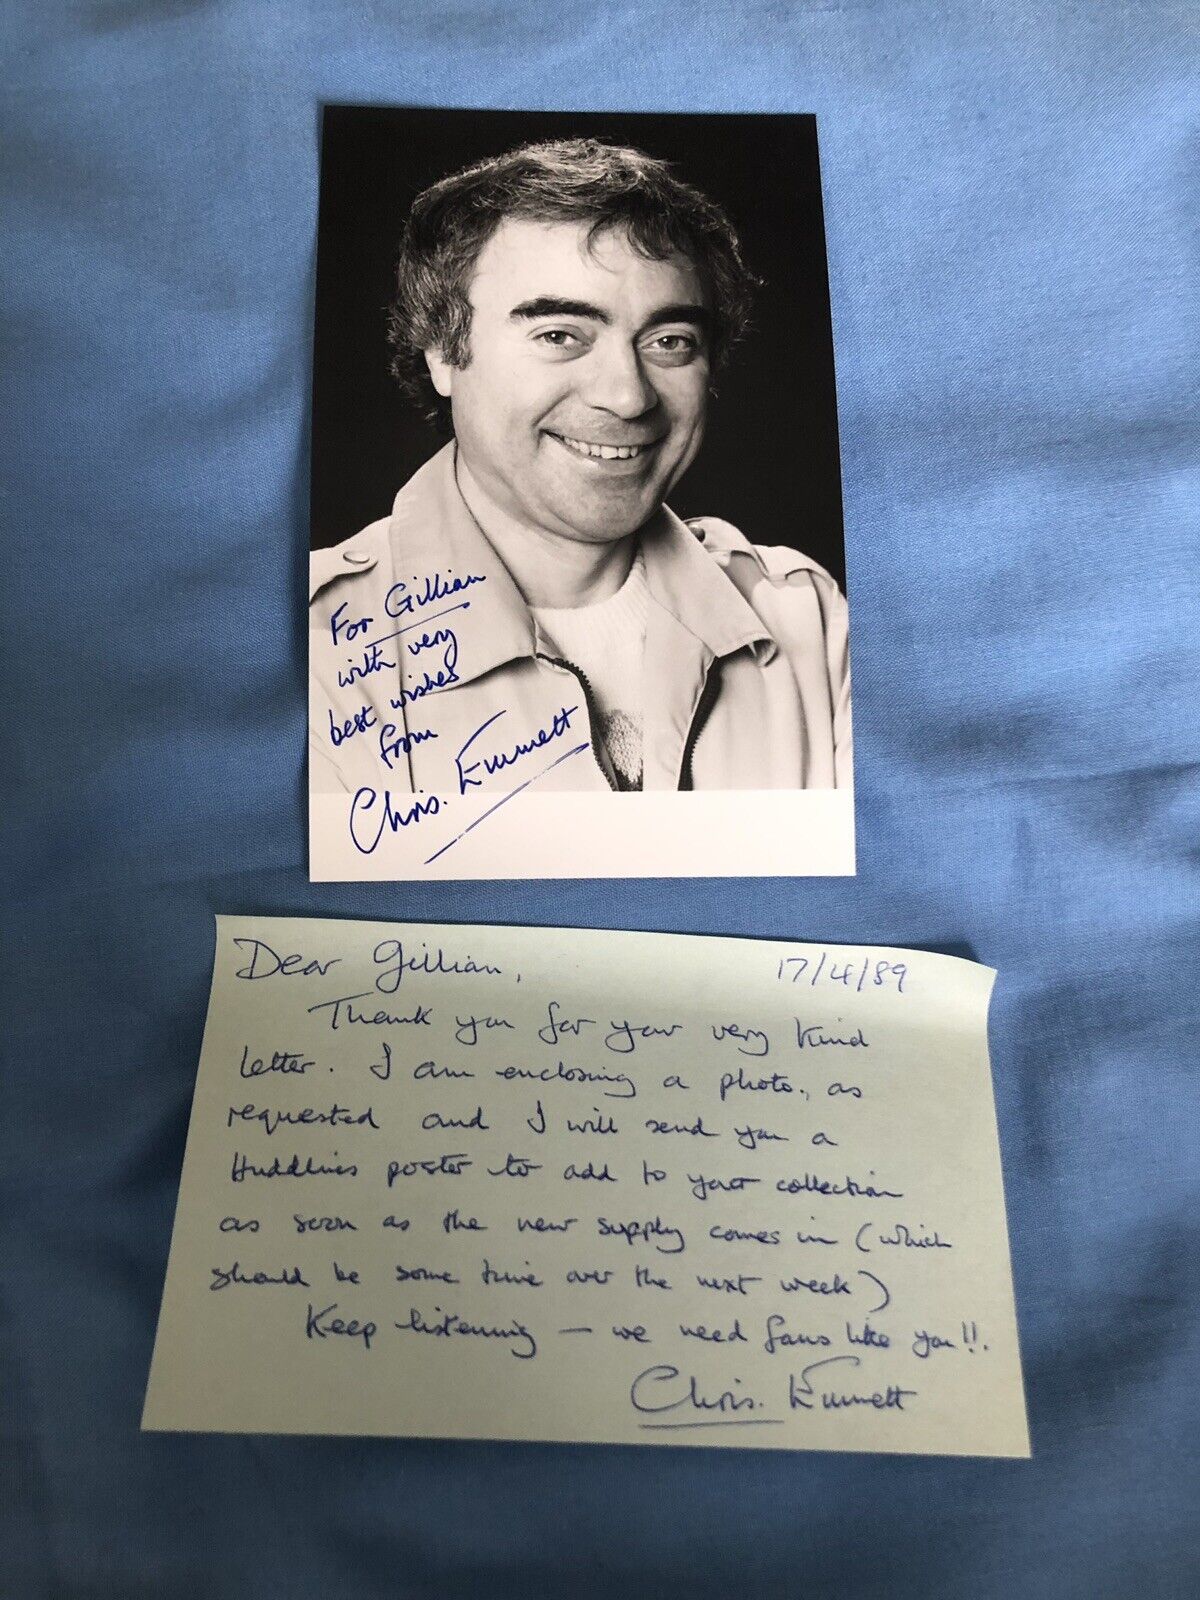 For Gillian
with very
best wishes
from
Chris. Emmett
Dear Gillian, 17/4/89
Thank you for your very kind
letter. I am enclosing a photo, as
requested and I will send you a
Huddlines poster to add to your collection
as soon as the new supply comes in (which
should be some time over the next week)
Keep listening — we need fans like you!!.
Chris. Emmett